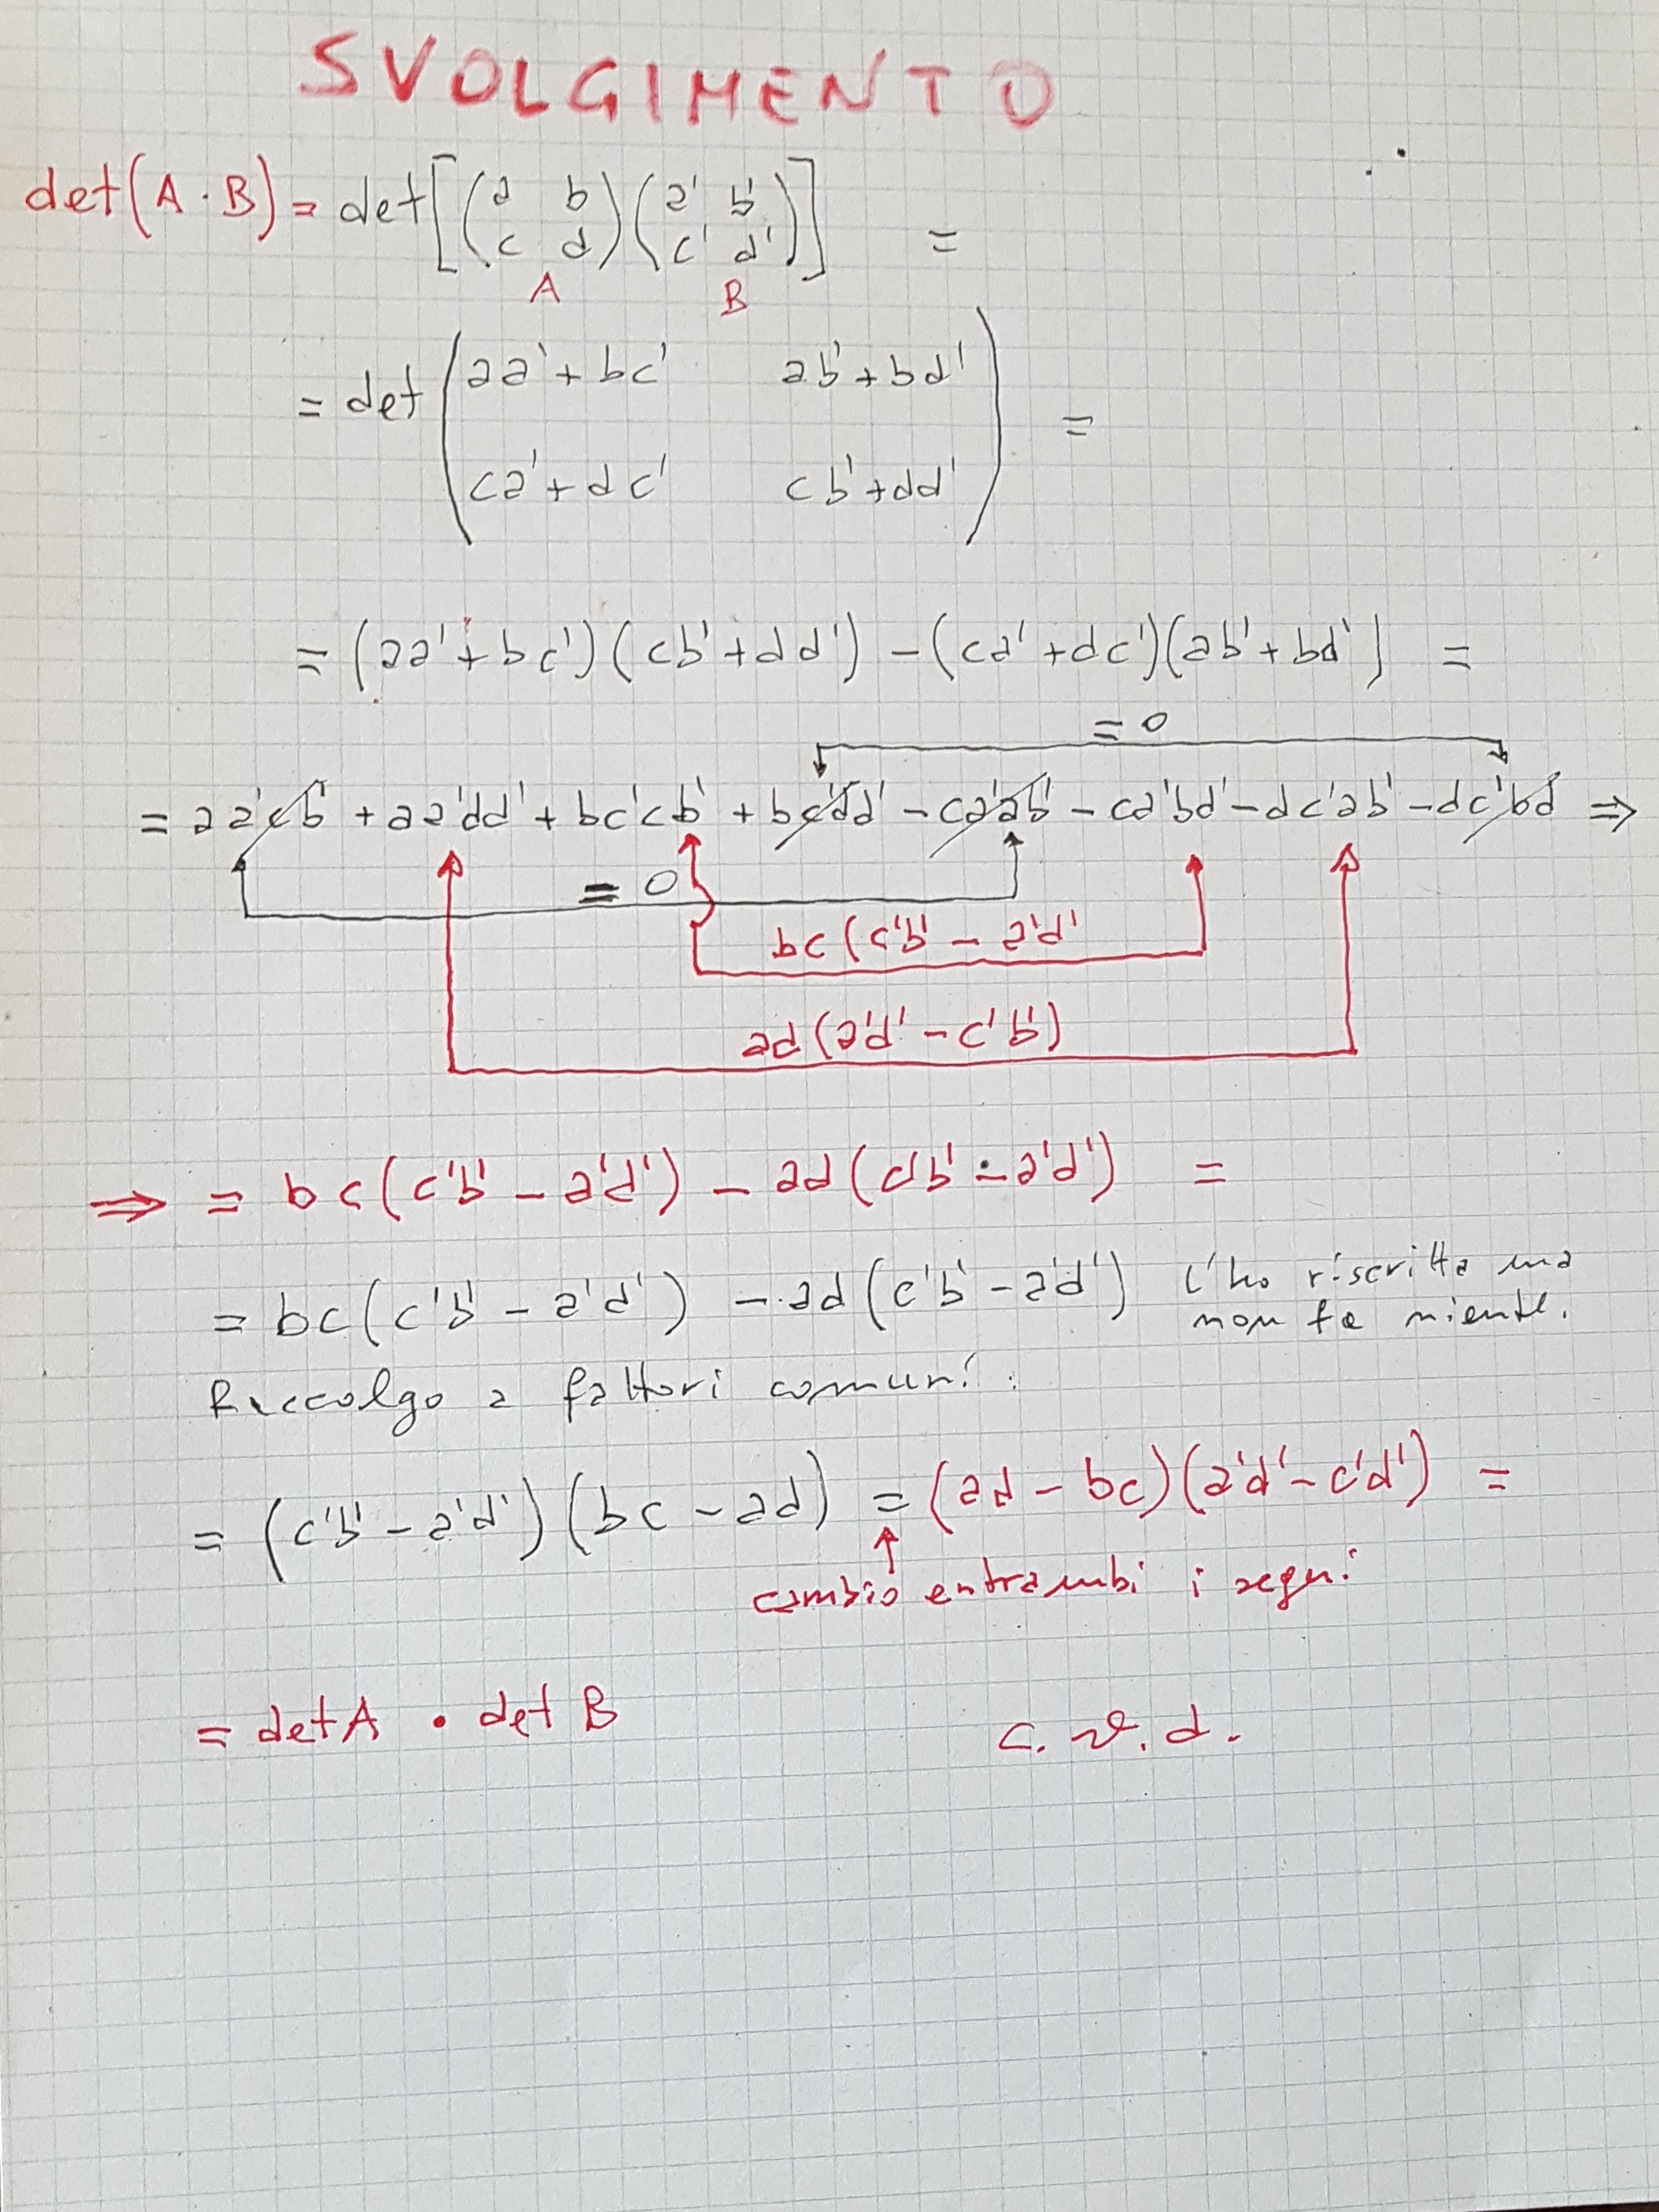 SVOLGIMENTO
det(A · B) = det[(a b c d)(a' b' c' d')] =
A B
= det (aa' + bc' ab' + bd'
ca' + dc' cb' + dd') =
= (aa' + bc')(cb' + dd') - (ca' + dc')(ab' + bd') =
= 0
= aa'cb' + aa'dd' + bc'cb' + bc'dd' - ca'ab' - ca'bd' - dc'ab' - dc'bd ⇒
= 0
bc(c'b' - a'd'
ad(a'd' - c'b')
⇒ = bc(c'b' - a'd') - ad(c'b' - a'd') =
= bc(c'b' - a'd') - ad(c'b' - a'd') l'ho riscritta ma
non fa niente.
Raccolgo a fattori comuni:
= (c'b' - a'd')(bc - ad) = (ad - bc)(a'd' - c'd') =
↑
cambio entrambi i segni
= det A · det B c.v.d.